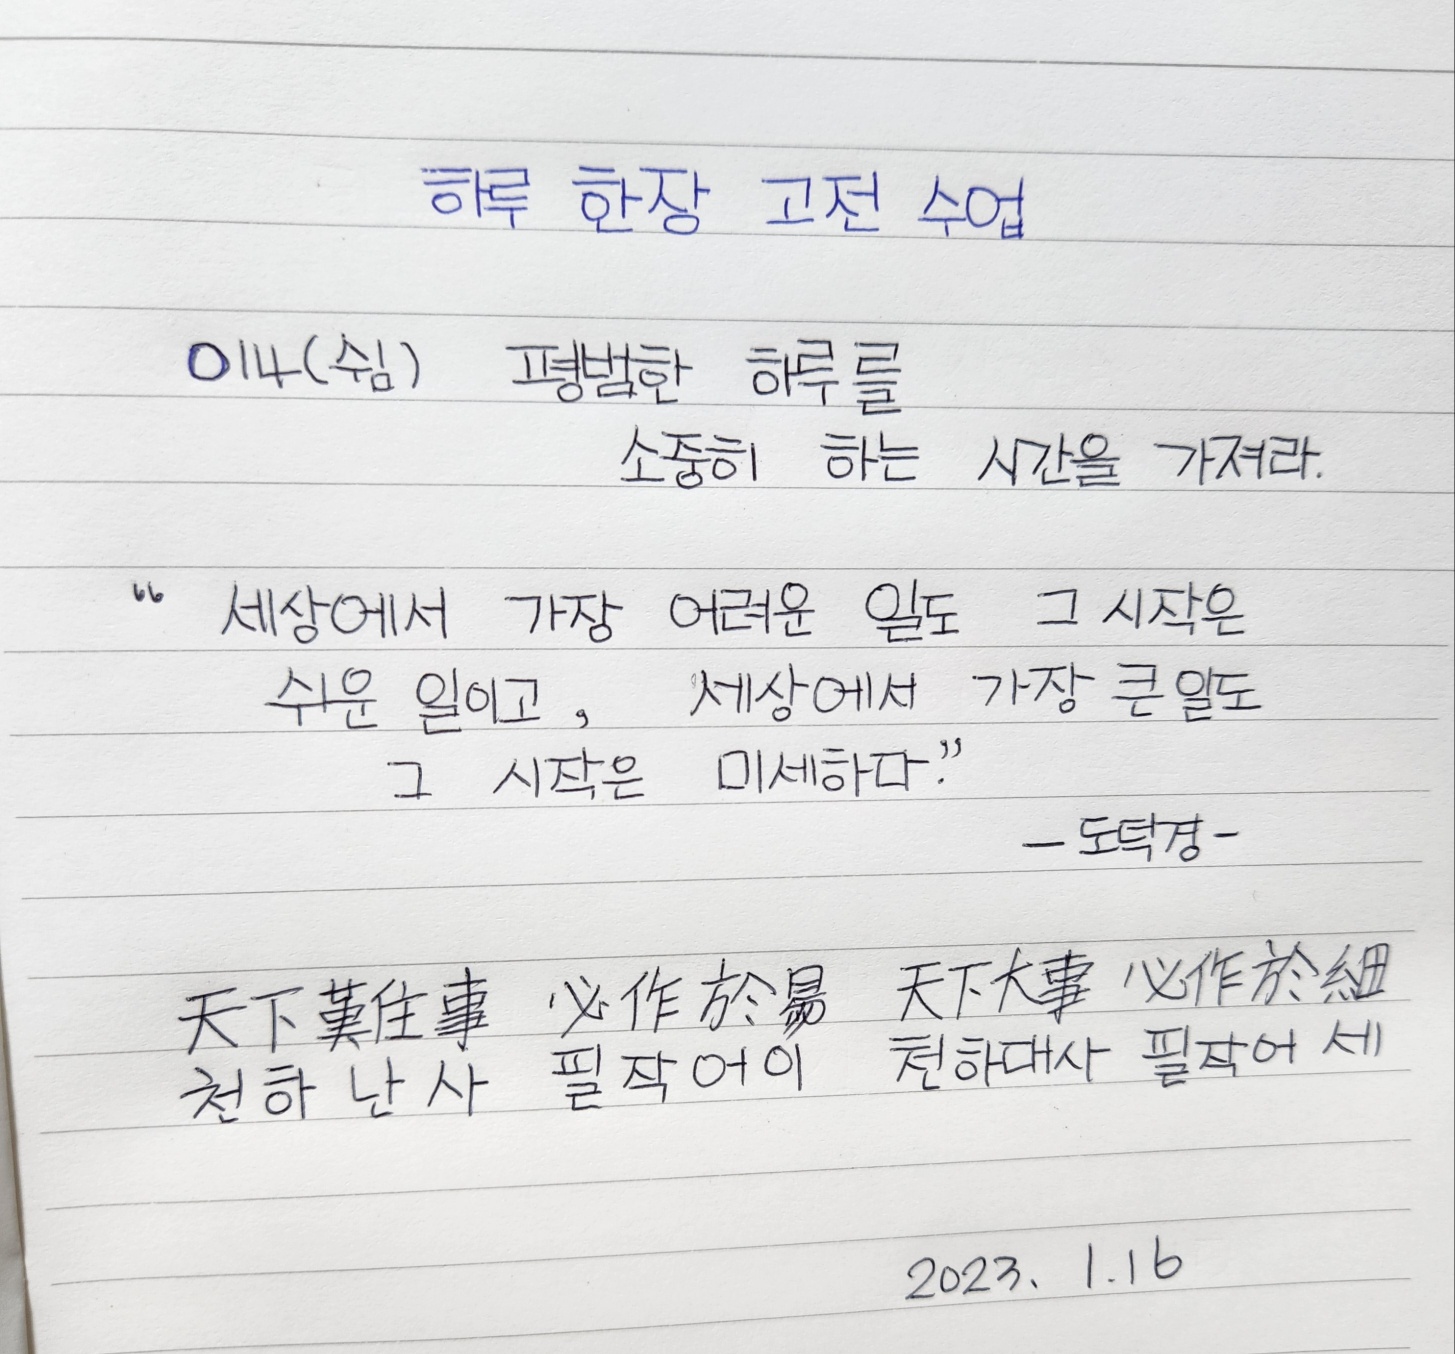 하루 한장 고전 수업
014(쉼) 평범한 하루를
소중히 하는 시간을 가져라.
“ 세상에서 가장 어려운 일도 그 시작은
쉬운 일이고, 세상에서 가장 큰일도
그 시작은 미세하다.”
- 도덕경 -
天下難事 必作於易 天下大事 必作於細
천하난사 필작어이 천하대사 필작어세
2023. 1.16